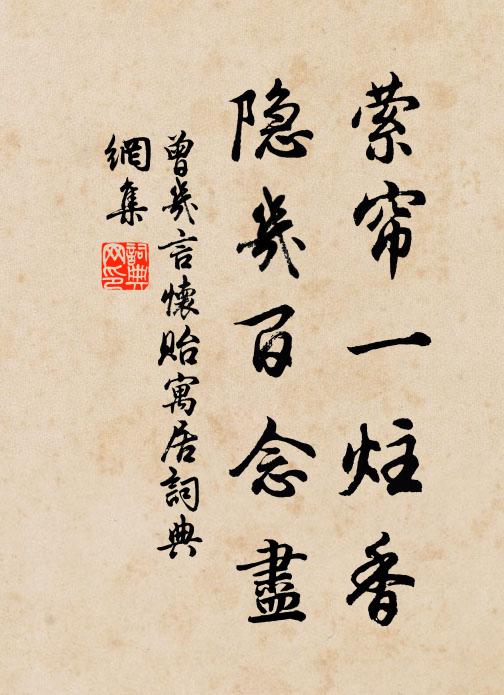 萦帘一炷香
隐幾百念盡
曾幾言懷貽寓居詞典
網集
詞典
网印